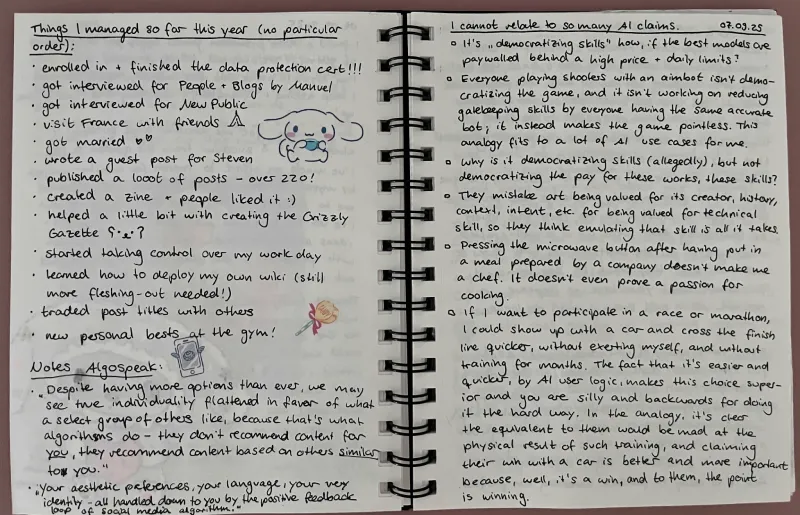 Things I managed so far this year (no particular
order):
· enrolled in + finished the data protection cert!!!
· got interviewed for People + Blogs by Manuel
· got interviewed for New Public
· visit France with friends
· got married ♡♡
· wrote a guest post for Steven
· published a looot of posts - over 220!
· created a zine + people liked it :)
· helped a little bit with creating the Grizzly
Gazette ʕ·ᴥ·ʔ
· started taking control over my work day
· learned how to deploy my own wiki (still
more fleshing-out needed!)
· traded post titles with others
· new personal bests at the gym!
Notes Algospeak:
· "Despite having more options than ever, we may
see true individuality flattened in favor of what
a select group of others like, because that's what
algorithms do - they don't recommend content for
you, they recommend content based on others similar
to you."
· "Your aesthetic preferences, your language, your very
identity - all handled down to you by the positive feedback
loop of social media algorithm."
I cannot relate to so many AI claims. 07.09.25
○ It's „democratizing skills" how, if the best models are
paywalled behind a high price + daily limits?
○ Everyone playing shooters with an aimbot isn't demo-
cratizing the game, and it isn't working on reducing
gatekeeping skills by everyone having the same accurate
bot; it instead makes the game pointless. This
analogy fits to a lot of AI use cases for me.
○ Why is it democratizing skills (allegedly), but not
democratizing the pay for these works, these skills?
○ They mistake art being valued for its creator, history,
context, intent, etc. for being valued for technical
skill, so they think emulating that skill is all it takes.
○ Pressing the microwave button after having put in
a meal prepared by a company doesn't make me
a chef. It doesn't even prove a passion for
cooking.
○ If I want to participate in a race or marathon,
I could show up with a car and cross the finish
line quicker, without exerting myself, and without
training for months. The fact that it's easier and
quicker, by AI user logic, makes this choice super-
ior and you are silly and backwards for doing
it the hard way. In the analogy, it's clear
the equivalent to them would be mad at the
physical result of such training, and claiming
their win with a car is better and more important
because, well, it's a win, and to them, the point
is winning.